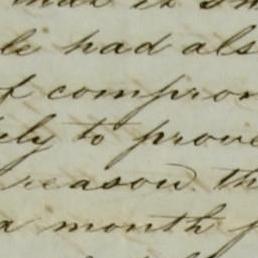 it
le had als
of compron
ely to prove
reason. th
a month